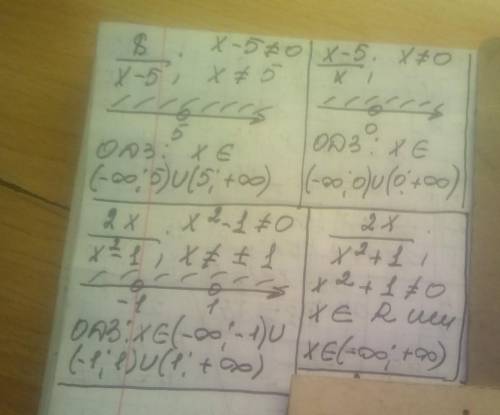 8/(x-5); x-5≠0
x≠5
5
ОДЗ: x∈
(-∞;5)∪(5;+∞)
(x-5)/x; x≠0
0
ОДЗ: x∈
(-∞;0)∪(0;+∞)
2x/(x²-1); x²-1≠0
x≠±1
-1 1
ОДЗ: x∈(-∞;-1)∪
(-1;1)∪(1;+∞)
2x/(x²+1);
x²+1≠0
x∈R или
x∈(-∞;+∞)